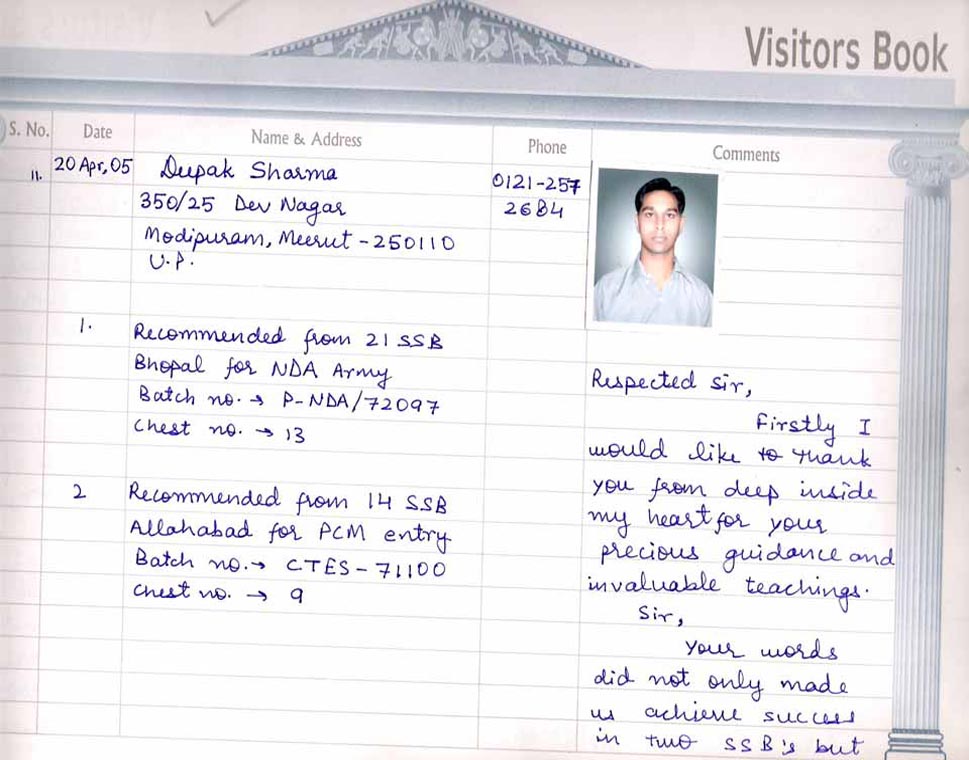 Visitors Book
S. No. Date Name & Address Phone Comments
11. 20 Apr, 05 Deepak Sharma 0121-257
350/25 Dev Nagar 2684
Modipuram, Meerut - 250110
U.P.
1. Recommended from 21 SSB
Bhopal for NDA Army
Batch no. → P-NDA/72097
Chest no. → 13
2 Recommended from 14 SSB
Allahabad for PCM entry
Batch no. → CTES - 71100
Chest no. → 9
Respected Sir,
Firstly I
would like to thank
you from deep inside
my heart for your
precious guidance and
invaluable teachings.
Sir,
Your words
did not only made
us achieve success
in two SSB's but